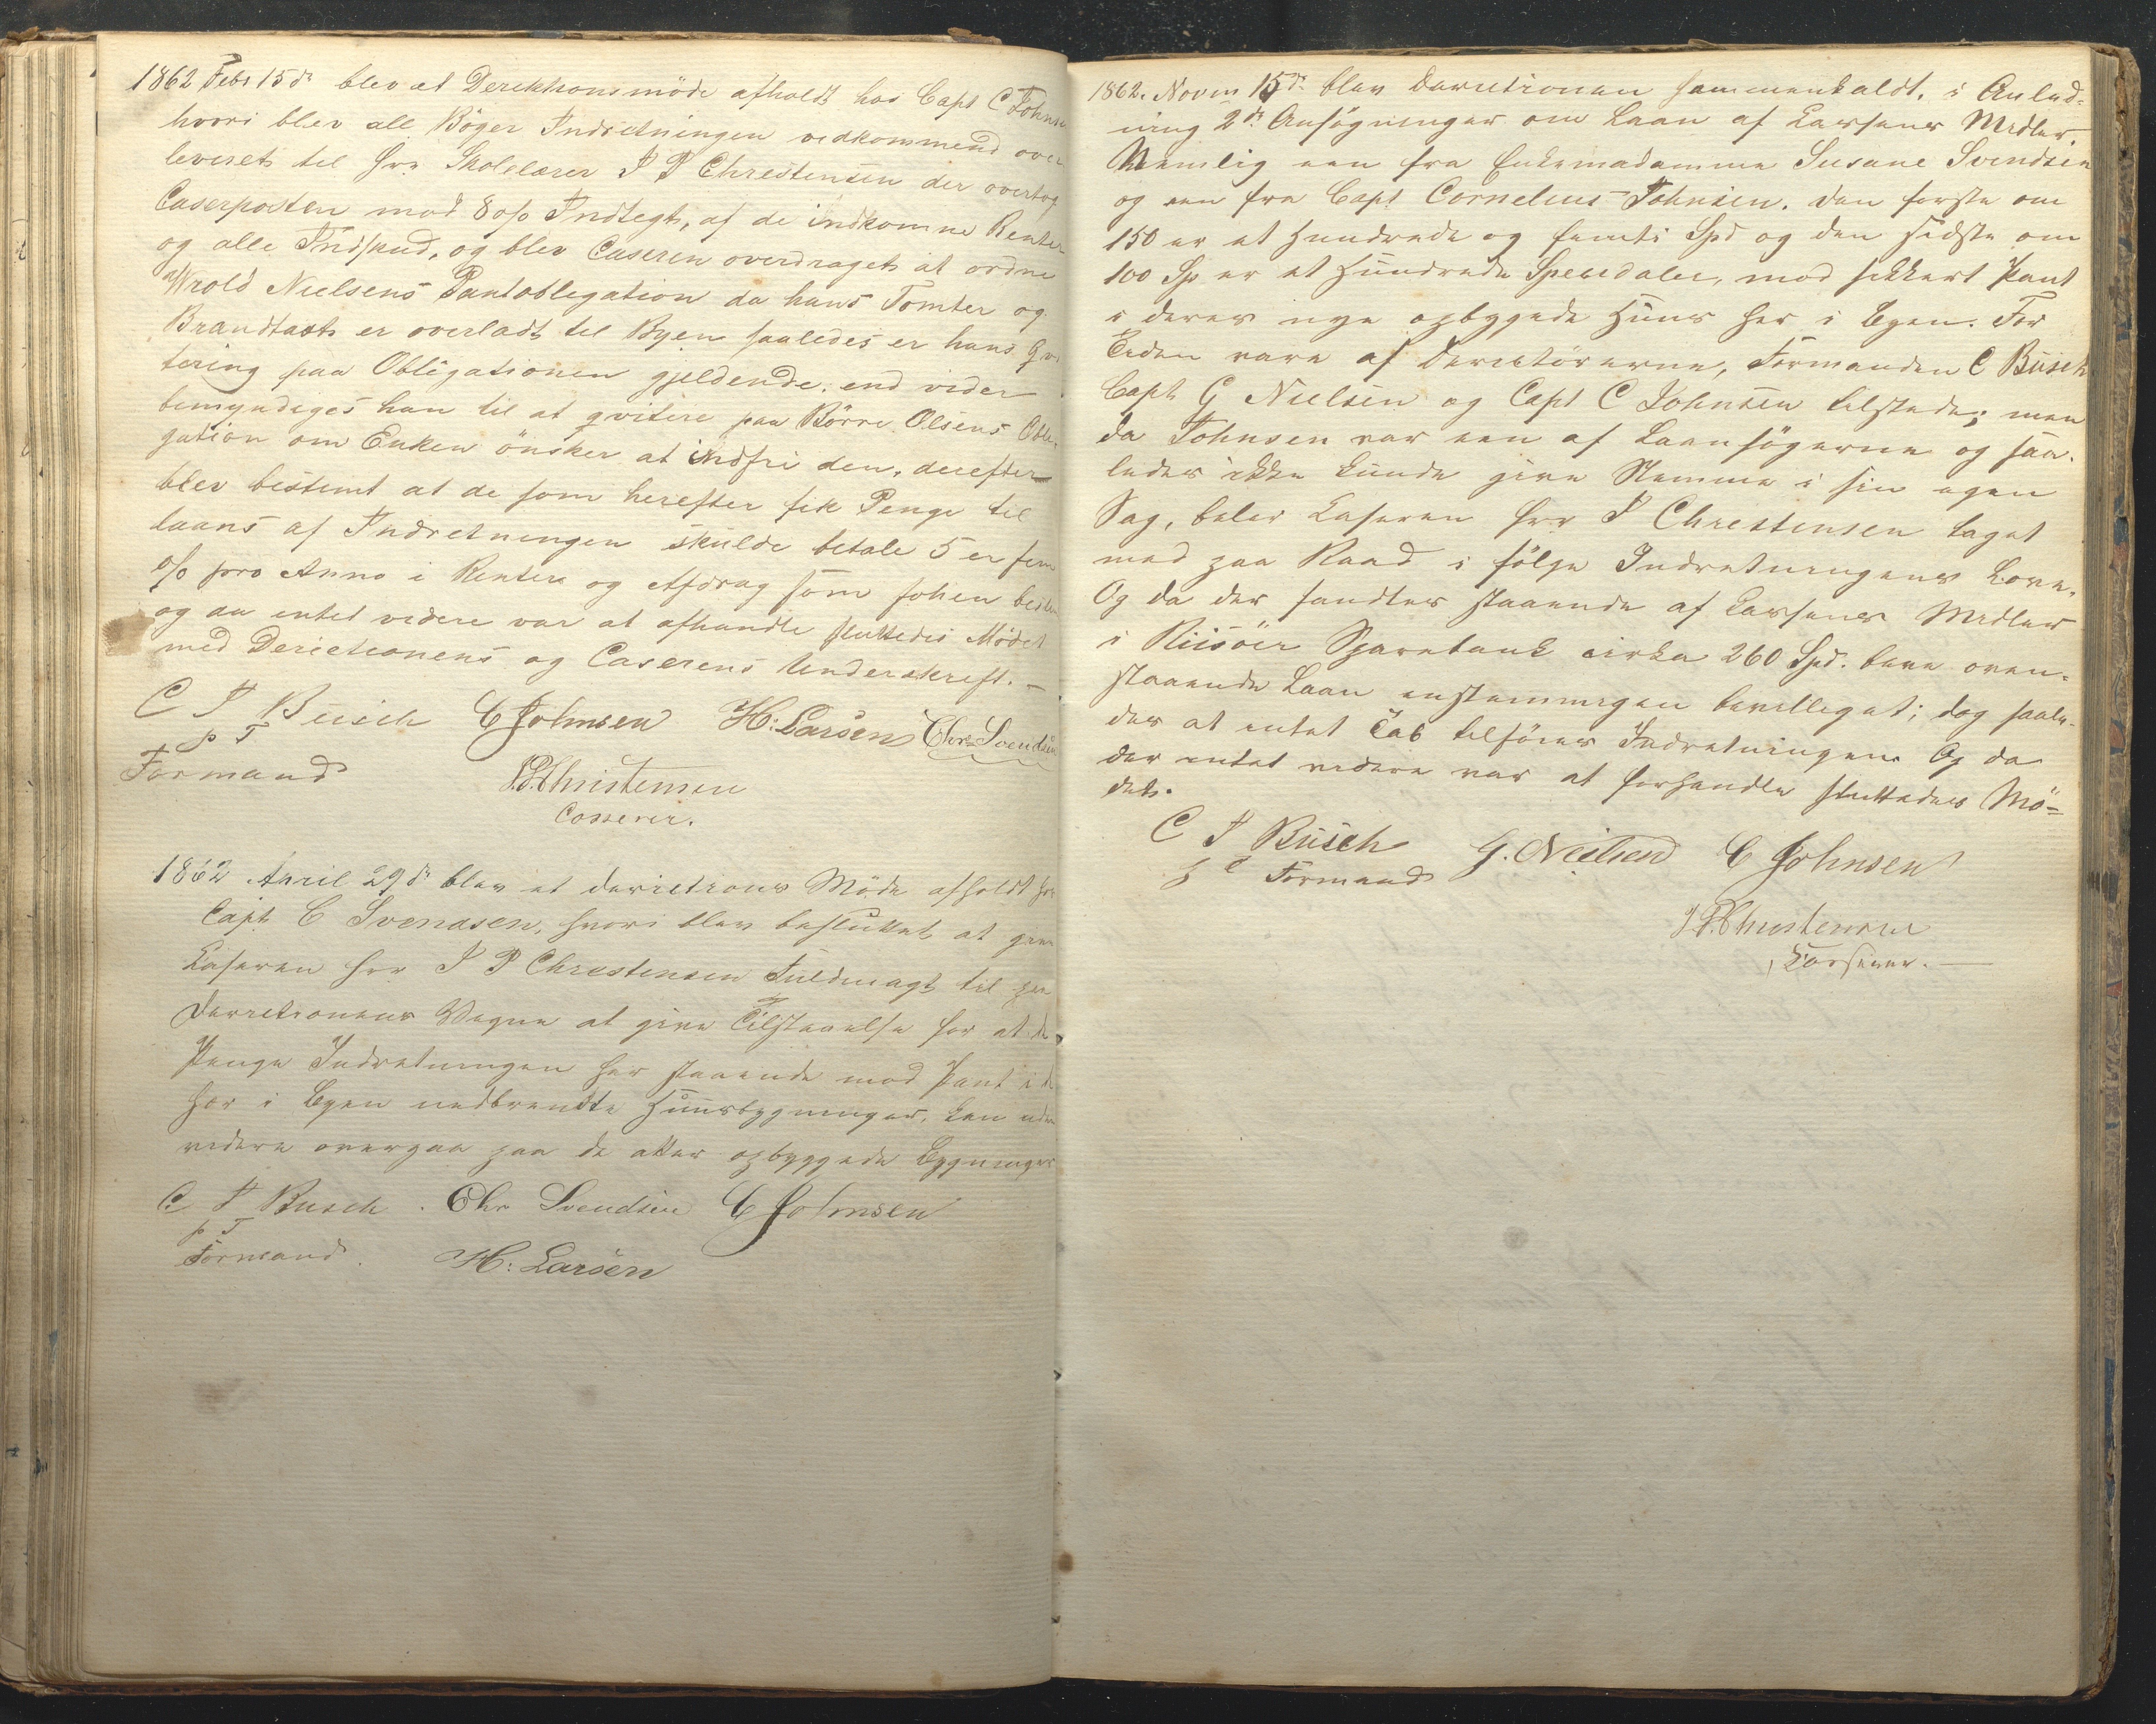 1862 Febr 15de blev et Derektionsmöde afholdt hos Capt C Johnse
hvori blev all Böger Indretningen vedkommend over
leveret til hr. Skolelærer J P Christensen der overtog
Caserposten mod 8 o/o Indtegt, af de indkomne Renter
og alle Indskud, og blev Caseren overdraget at ordne
Wrold Nielsens Pantoblegation da hans Tomter og
Brandtaxt er overladt til Byen saaledes er hans Qvi
tering paa Obligationen gjeldende. end vider
bemyndiges han til at qvitere paa Börre Olsens Oble
gation om Enken önsker at indfri den. derefter
blev bestemt at de som herefter fik Penge til
laans af Indretningen skulde betale 5 er fem
o/o pro Anno i Renter og Afdrag som forhen bestem
og da entet videre var at afhandle sluttedes Mödet
med Derectionens og Caserens Underskreft. —
C J Busch C Johnsen H: Larsen Chr. Svendsen
p T
Formand J.P. Christensen
Casserer.
1862 April 29de blev et Derections Möde afholdt hos
Capt C Svendsen, hvori blev besluttet at give
Kaseren Hrr J P Chrestensen Fuldmagt til paa
Derectionens Vegne at give Tilstaaelse for at de
Penge Indretningen har staaende mod Pant i de
her i Byen nedbrendte Huusbygninger, kan uden
videre overgaa paa de atter opbyggede Bygninger
C J Busch . Chr Svendsen C Johnsen
p T
Formand. H: Larsen
1862. Novem 15de blev Derectionen sammenkaldt, i Anled-
ning 2de Ansögninger om Laan af Kassens Medler,
Nemlig een fra Enkemadamme Susane Svendsen
og een fra Capt Cornelius Johnsen. den forste om
150 er et Hundrede og femti Spd og den sidste om
100 Sp er et Hundrede Speciedaler, mod sikkert Pant
i deres nye opbyggede Huus her i Byen. For
Tiden vare af Derectörerne, Formanden C Busch
Capt G Nielsen og Capt C Johnsen tilstede; men
da Johnsen var een af Laansögerne og saa-
ledes ikke kunde give Stemme i sin egen
Sag, blev Kaseren hrr J Chrestensen taget
med paa Raad i fölge Indretningens Love.
Og da der fandtes staaende af Kassens Medler
i Riisöer Sparebank cirka 260 Spd. bleve oven-
staaende Laan enstemmigen bevelleget; dog saale-
des at entet Tab tilföies Indretningen. Og da
der entet videre var at forhandle sluttedes Mö-
det.
C J Busch G. Neilsen C Johnsen
p t Formand
J P. Christensen
Kasserer. —